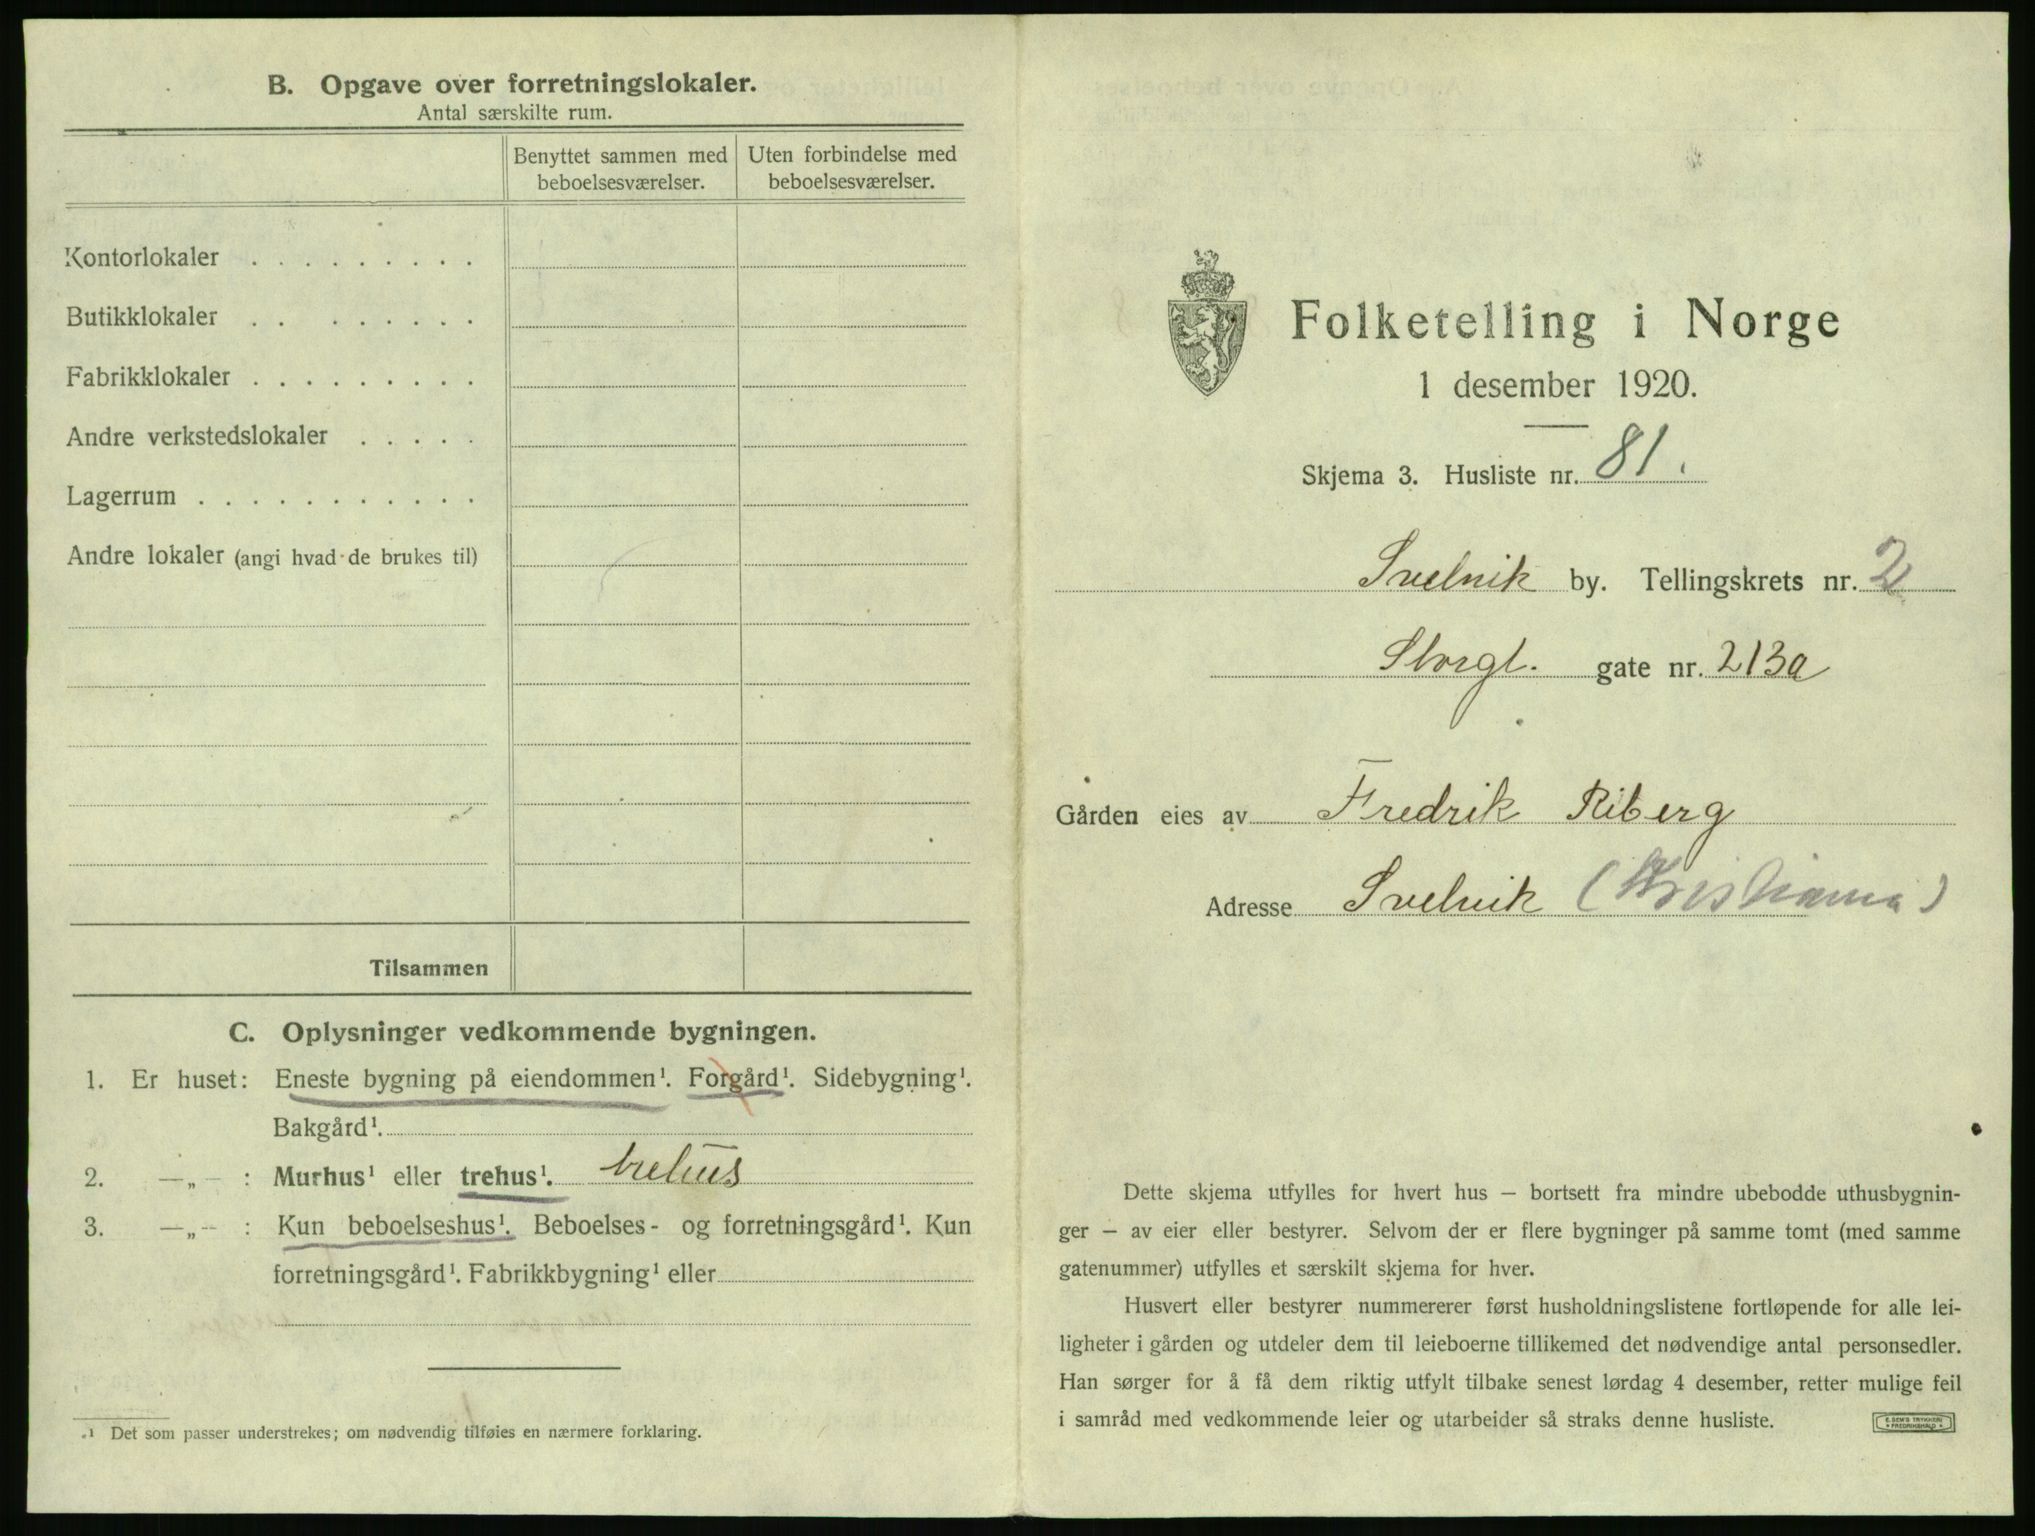 B. Opgave over forretningslokaler.
Antal særskilte rum.
Benyttet sammen med beboelsesværelser.
Uten forbindelse med beboelsesværelser.
Kontorlokaler . . . . . . . . .
Butikklokaler . . . . . . . .
Fabrikklokaler . . . . . . . . .
Andre verkstedslokaler . . . . .
Lagerrum . . . . . . . . . . .
Andre lokaler (angi hvad de brukes til)
Tilsammen
C. Oplysninger vedkommende bygningen.
1. Er huset: Eneste bygning på eiendommen¹. Forgård¹. Sidebygning¹.
Bakgård¹.
2. —„— : Murhus¹ eller trehus¹. trehus
3. —„— : Kun beboelseshus¹. Beboelses- og forretningsgård¹. Kun
forretningsgård¹. Fabrikkbygning¹ eller
¹ Det som passer understrekes; om nødvendig tilføies en nærmere forklaring.
Folketelling i Norge
1 desember 1920.
Skjema 3. Husliste nr. 81.
Svelvik by. Tellingskrets nr. 2
Storgt. gate nr. 213a
Gården eies av Fredrik Riberg
Adresse Svelvik (Kristiania)
Dette skjema utfylles for hvert hus — bortsett fra mindre ubebodde uthusbygnin-
ger — av eier eller bestyrer. Selvom der er flere bygninger på samme tomt (med samme
gatenummer) utfylles et særskilt skjema for hver.
Husvert eller bestyrer nummererer først husholdningslistene fortløpende for alle lei-
ligheter i gården og utdeler dem til leieboerne tillikemed det nødvendige antal personsedler.
Han sørger for å få dem riktig utfylt tilbake senest lørdag 4 desember, retter mulige feil
i samråd med vedkommende leier og utarbeider så straks denne husliste.
E. SEM'S TRYKKERI
FREDRIKSHALD